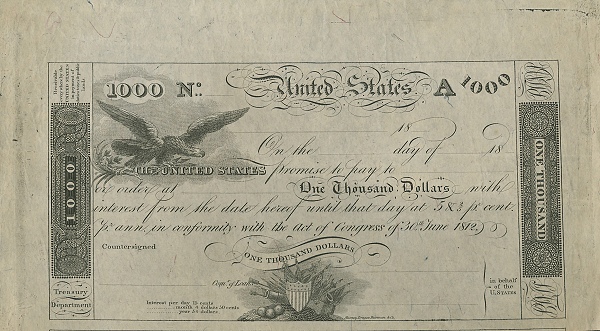 1000 No. United States A 1000
18
On the day of 18
THE UNITED STATES promise to pay to
or order at One Thousand Dollars with
interest from the date hereof until that day at 5 & 2/5 pr. cent.
pr. ann. in conformity with the act of Congress of 30th June 1812.
Countersigned
ONE THOUSAND DOLLARS
Comr. of Loans
in behalf
of the
U.STATES
Interest per day 15 cents
month 4 dollars 50 cents
year 54 dollars
Treasury
Department
1000
ONE THOUSAND
Receivable
every where by the
UNITED STATES
in payment of
public
lands